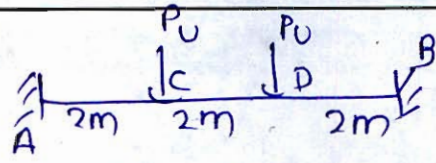 Pu Pu
C D B
A 2m 2m 2m